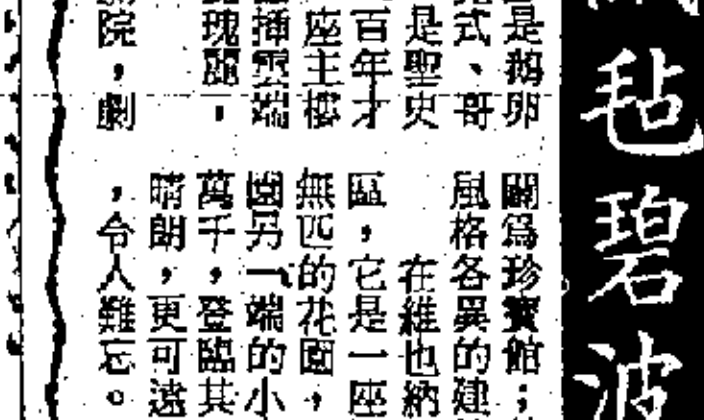 毡碧波
是鹅卵
式、哥
是聖史
百年才
座主樓
插雲端
瑰麗。
院，劇
闢爲珍寶館；
風格各異的建
在維也納
區，它是一座
無匹的花園，
園另一端的小
萬千，登臨其
晴朗，更可遠
，令人難忘。